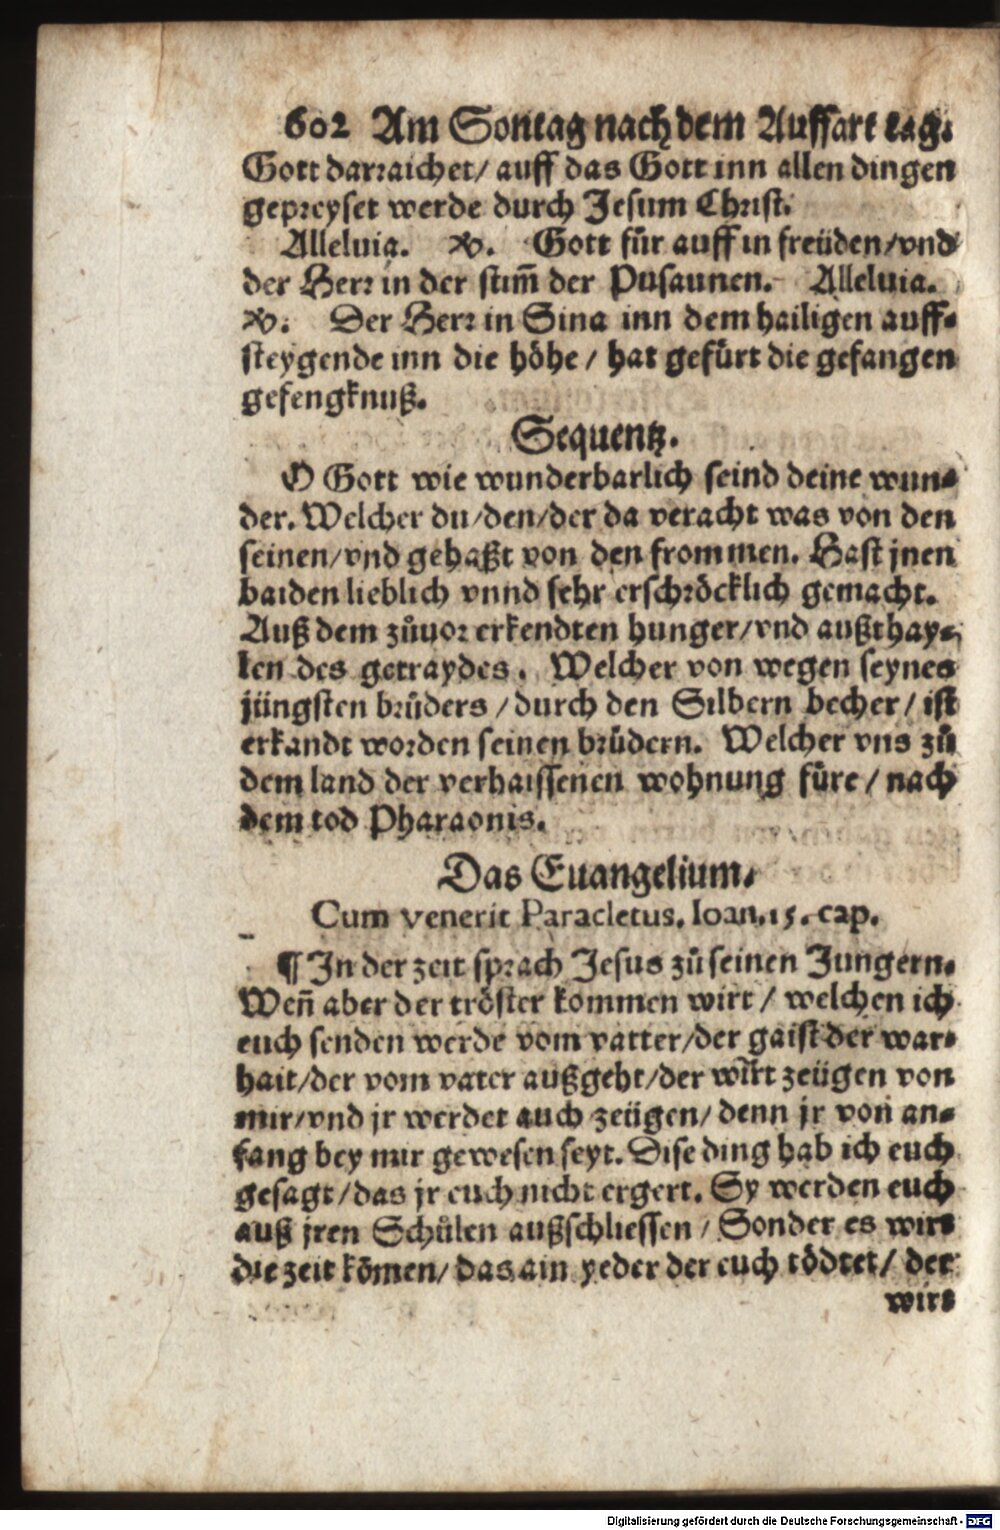 602 Am Sontag nach dem Auffart tag.
Gott darraichet/ auff das Gott inn allen dingen
gepreyset werde durch Jesum Christ.
Alleluia. ℣. Gott für auff in freüden/vnd
der Herr in der stim̄ der Pusaunen. Alleluia.
℣. Der Herr in Sina inn dem hailigen auff-
steygende inn die höhe/ hat gefürt die gefangen
gefengknuß.
Sequentz.
O Gott wie wunderbarlich seind deine wun-
der. Welcher du/den/der da veracht was von den
seinen/vnd gehaßt von den frommen. Hast jnen
baiden lieblich vnnd sehr erschröcklich gemacht.
Auß dem zůuor erkendten hunger/vnd außthay-
len des getraydes. Welcher von wegen seynes
jüngsten brůders/durch den Silbern becher/ ist
erkandt worden seinen brüdern. Welcher vns zů
dem land der verhaissenen wohnung füre/ nach
dem tod Pharaonis.
Das Euangelium.
Cum venerit Paracletus. Ioan. 15. cap.
¶ In der zeit sprach Jesus zů seinen Jungern.
Weñ aber der tröster kommen wirt/ welchen ich
euch senden werde vom vatter/der gaist der war-
hait/der vom vater außgeht/der wirt zeügen von
mir/vnd jr werdet auch zeügen/ denn jr von an-
fang bey mir gewesen seyt. Dise ding hab ich euch
gesagt/das jr euch nicht ergert. Sy werden euch
auß jren Schůlen außschliessen/ Sonder es wirt
die zeit kōmen/ das ain yeder der euch tödtet/ der
wirt
Digitalisierung gefördert durch die Deutsche Forschungsgemeinschaft - DFG